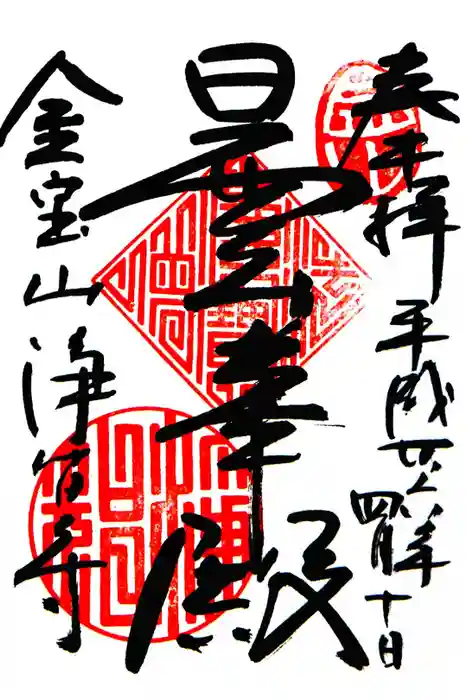 奉拝
平成廿八年四月十日
曇華殿
金宝山浄智寺